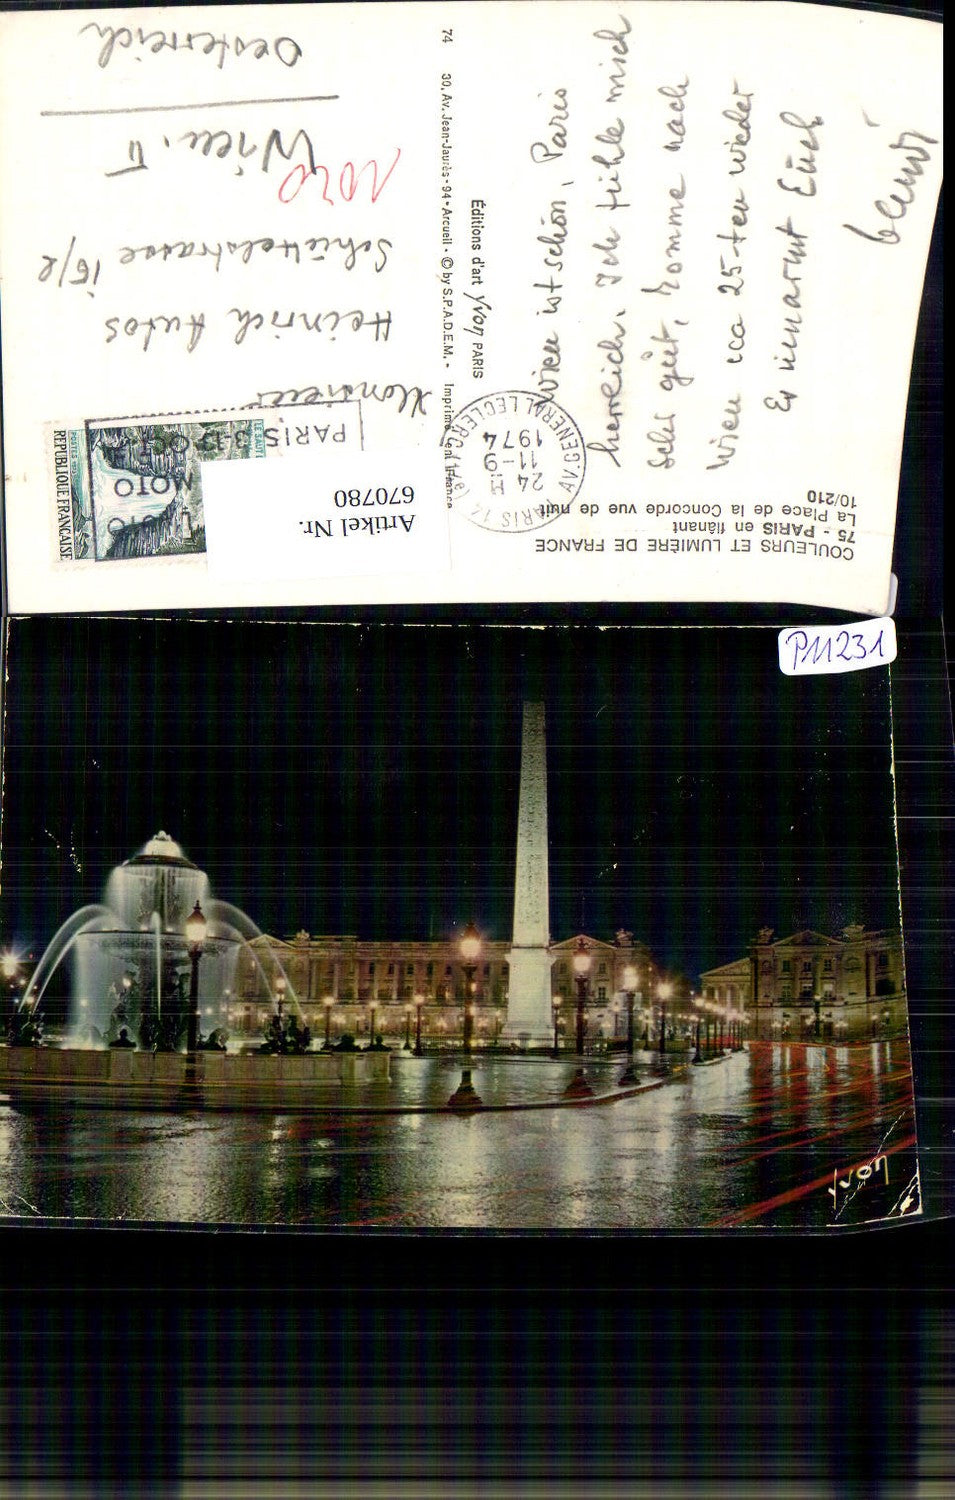 COULEURS ET LUMIÈRE DE FRANCE
75 - PARIS en flânant
La Place de la Concorde vue de nuit
10/210
Wien ist schön, Paris
herrlich. Ich fühle mich
sehr gut, komme nach
Wien cca 25-ten wieder
Es umarmt Euch
Éditions d'art Yvon PARIS
74 30, Av. Jean-Jaurès - 94 - Arcueil - © by S.P.A.D.E.M. - Imprimé en France
PARIS 14
AV. GENERAL LECLERC (14e)
24 H
11-9
1974
PARIS 3-13 OC
MOTO
RÉPUBLIQUE FRANÇAISE
POSTES
LE SAUT
Artikel Nr.
670780
Monsieur
Heinrich
Schüttelstrasse 15/2
1020
Wien. II
Oesterreich
P11231
yvon